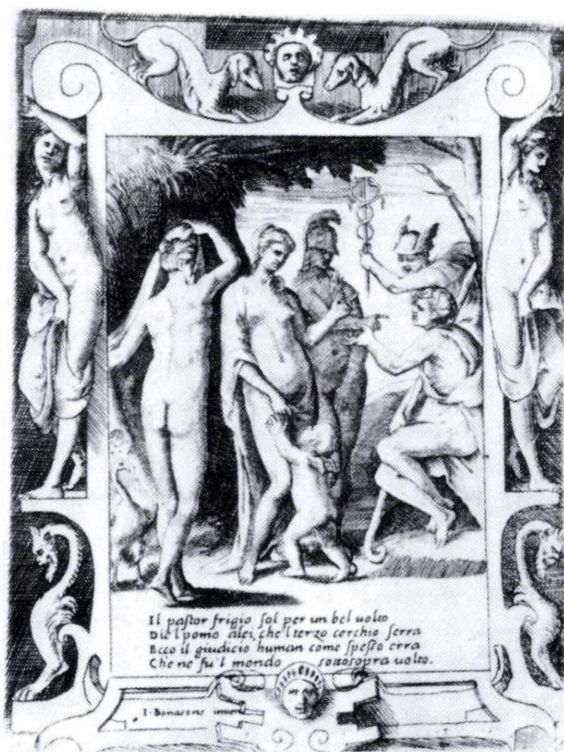 Il pastor frigio sol per un bel uolto
Die l pomo alei, che l terzo cerchio serra
Ecco il giudicio human come spesso erra
Che ne fu'l mondo sottosopra uolto.
I. Bonasone